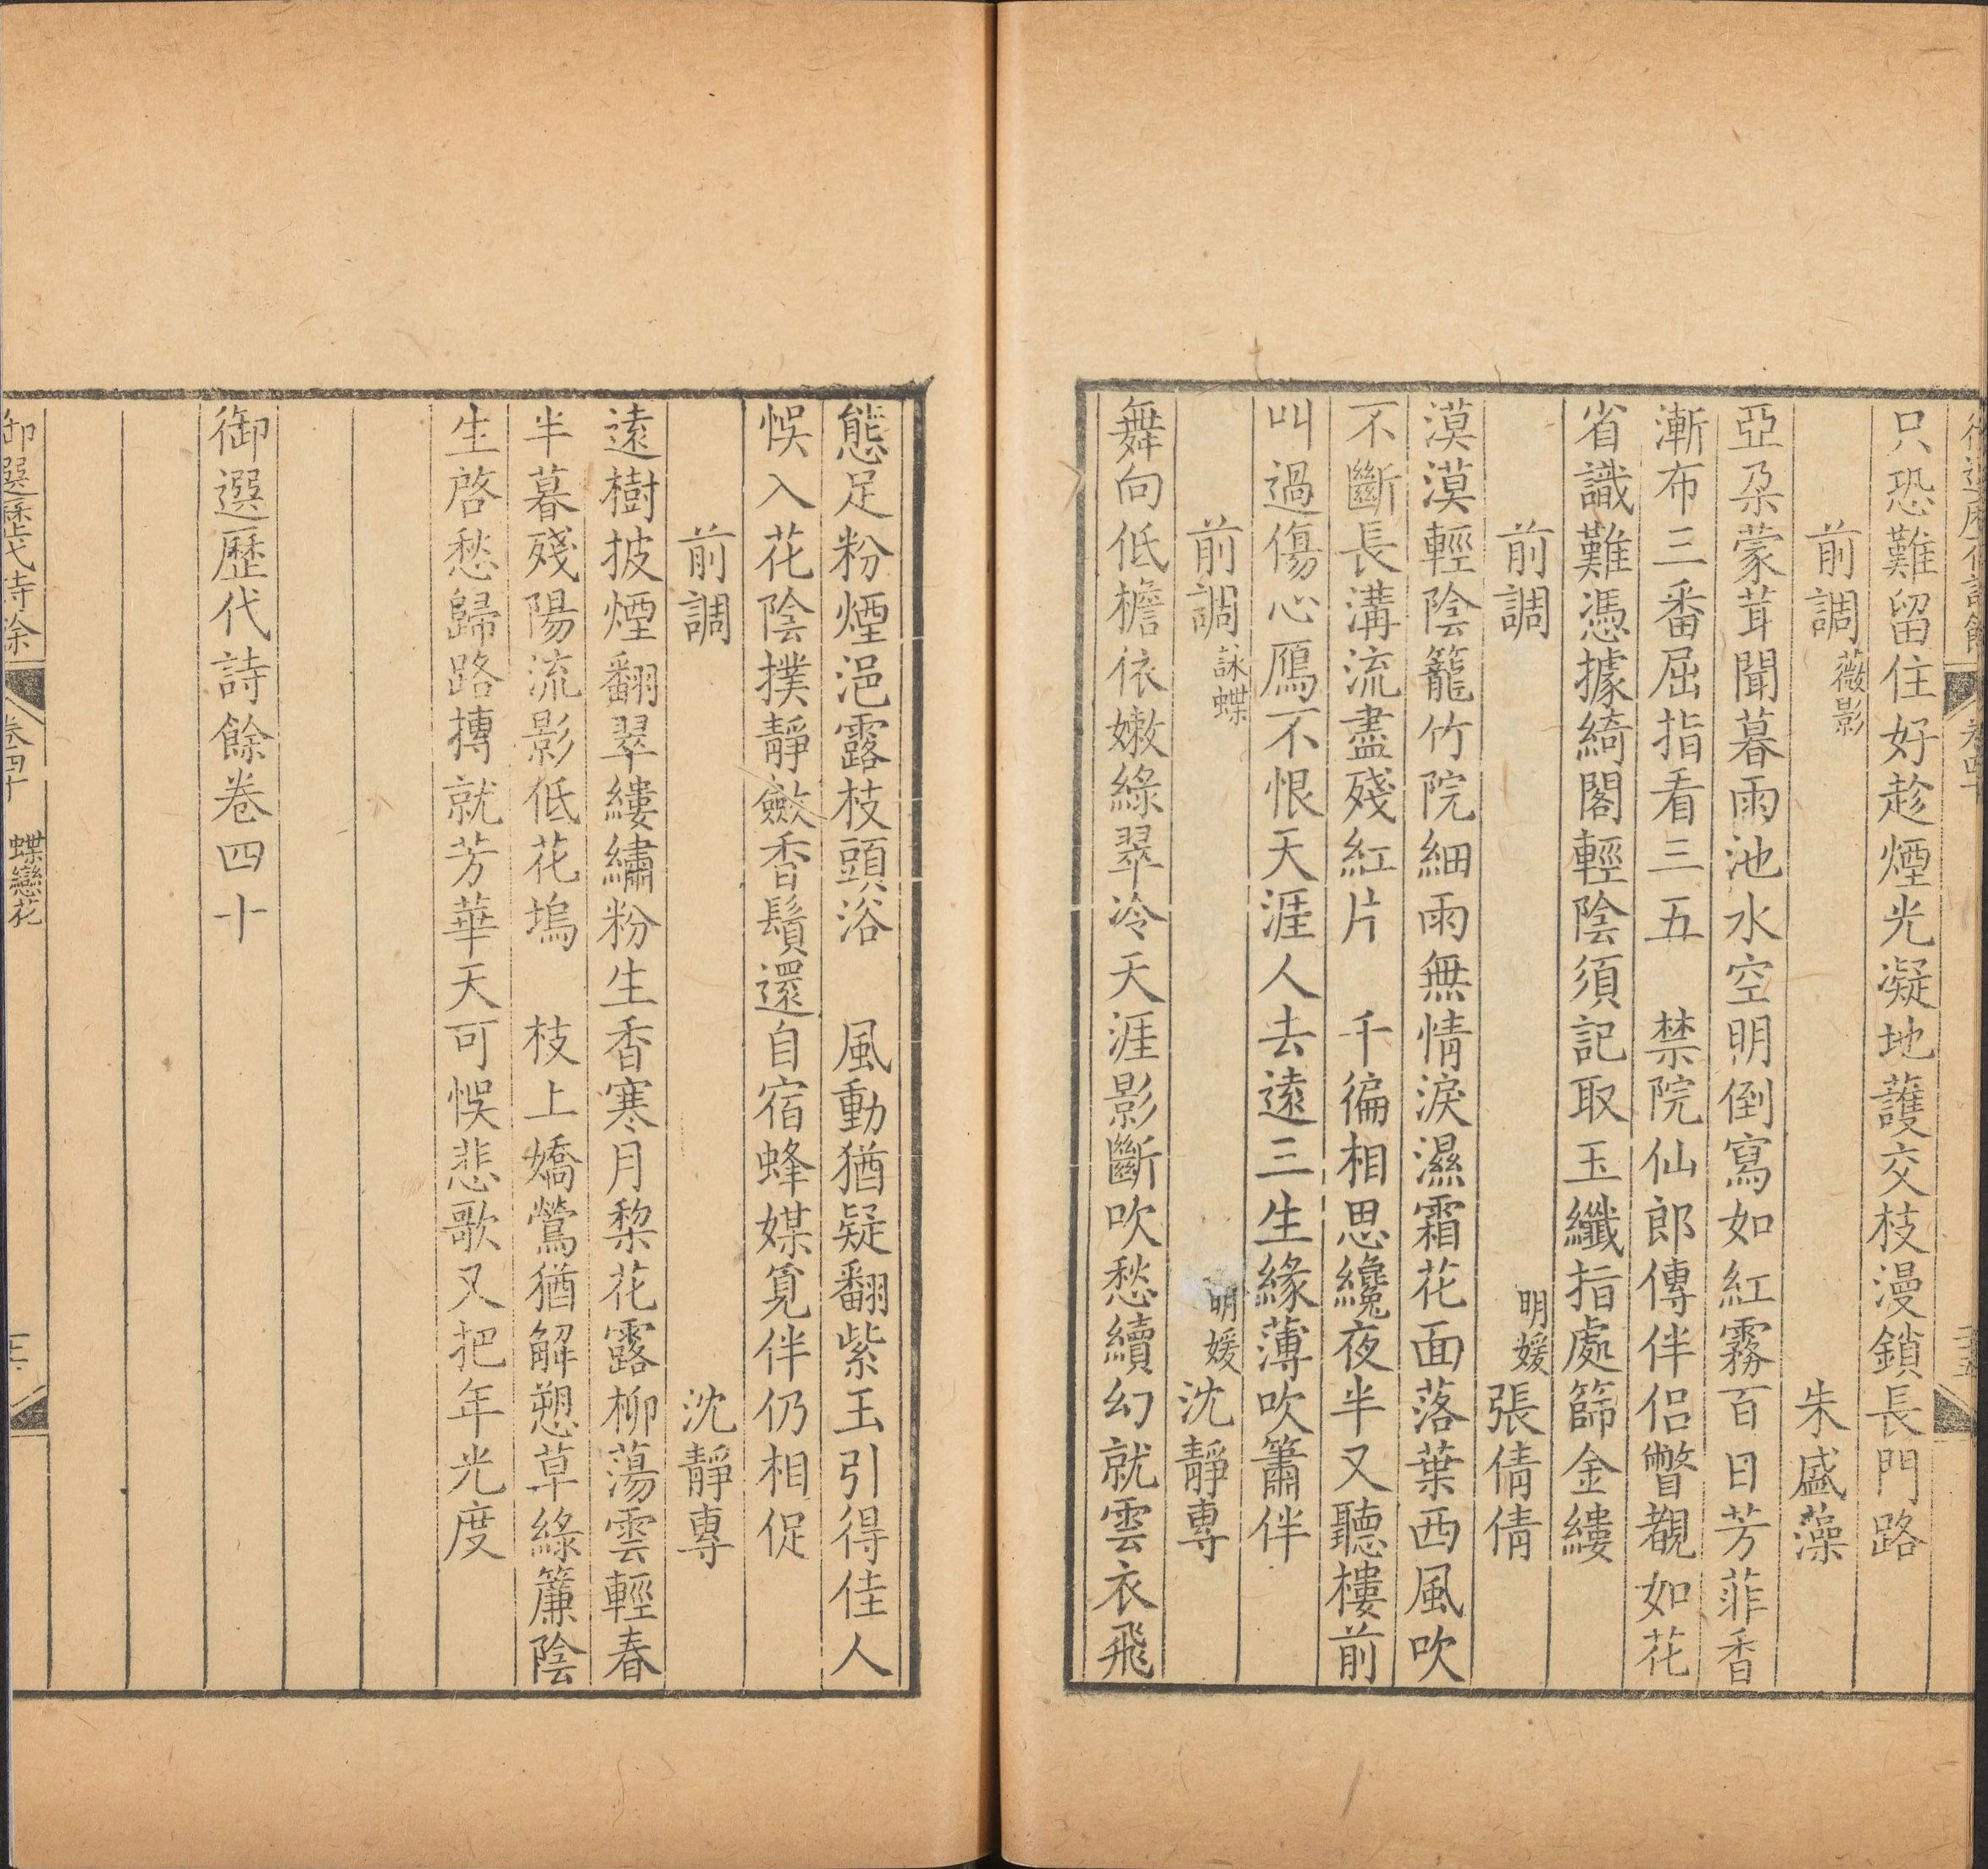 只恐難留住好趁煙光凝地護交枝漫鎖長門路
前調薇影 朱盛藻
亞朶蒙茸聞暮雨池水空明倒寫如紅霧百日芳菲香
漸布三番屈指看三五 禁院仙郎傳伴侶瞥覩如花
省識難憑據綺閣輕陰須記取玉纖指處篩金縷
前調 明媛張倩倩
漠漠輕陰籠竹院細雨無情淚濕霜花面落葉西風吹
不斷長溝流盡殘紅片 千徧相思纔夜半又聽樓前
叫過傷心鴈不恨天涯人去遠三生緣薄吹簫伴
前調詠蝶 明媛沈靜專
舞向低檐依嫩綠翠冷天涯影斷吹愁續幻就雲衣飛
態足粉煙浥露枝頭浴 風動猶疑翻紫玉引得佳人
悞入花陰撲靜斂香鬚還自宿蜂媒覓伴仍相促
前調 沈靜專
遠樹披煙翻翠縷繡粉生香寒月棃花露柳蕩雲輕春
半暮殘陽流影低花塢 枝上嬌鶯猶解愬草綠簾陰
生啓愁歸路摶就芳華天可悞悲歌又把年光度
御選歷代詩餘卷四十
御選歷代詩餘 卷四十 蝶戀花